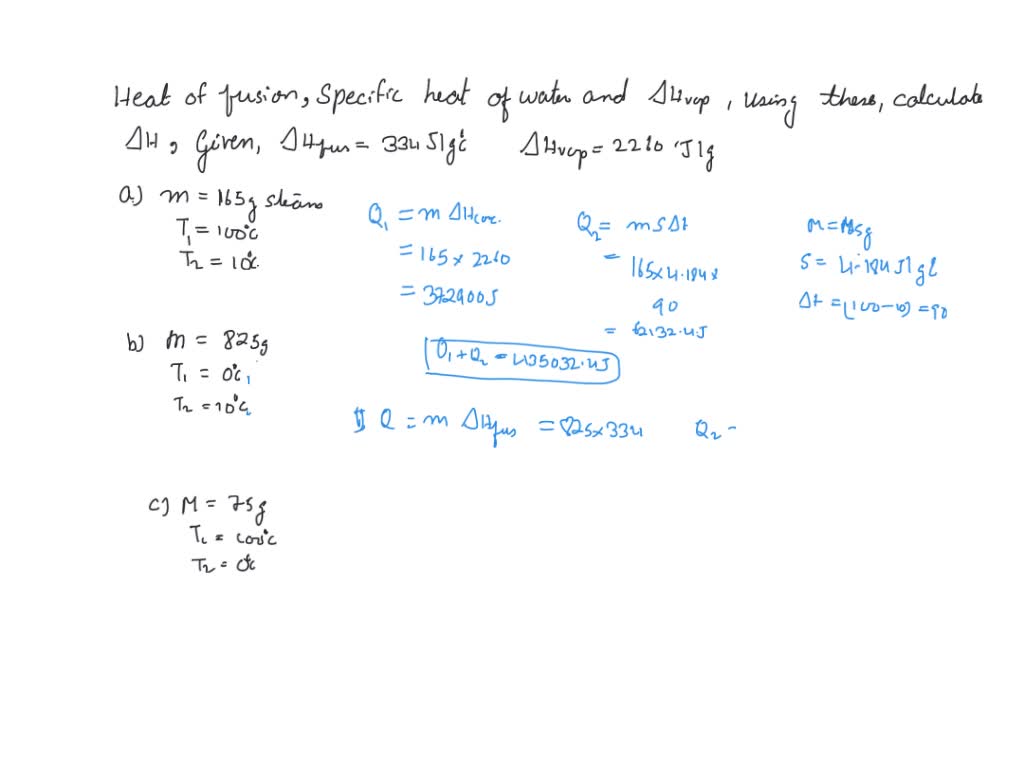 Heat of fusion, Specific heat of water and ΔHvap, Using these, calculate
ΔH, Given, ΔHfus = 334 J/g°c ΔHvap = 2260 J/g
a) m = 165g steam
T1 = 100°c
T2 = 10°c.
Q1 = m ΔHcon.
= 165 x 2260
= 372900J
Q2 = m S Δt
= 165 x 4.184 x
90
= 62132.4J
M = 165g
S = 4.184 J/g c
Δt = (100-10) = 90
Q1 + Q2 = 435032.4J
b) m = 825g
T1 = 0°c,
T2 = 10°c
Q = m ΔHfus = 825x334 Q2 -
c) M = 75g
T1 = 100°c
T2 = 0°c